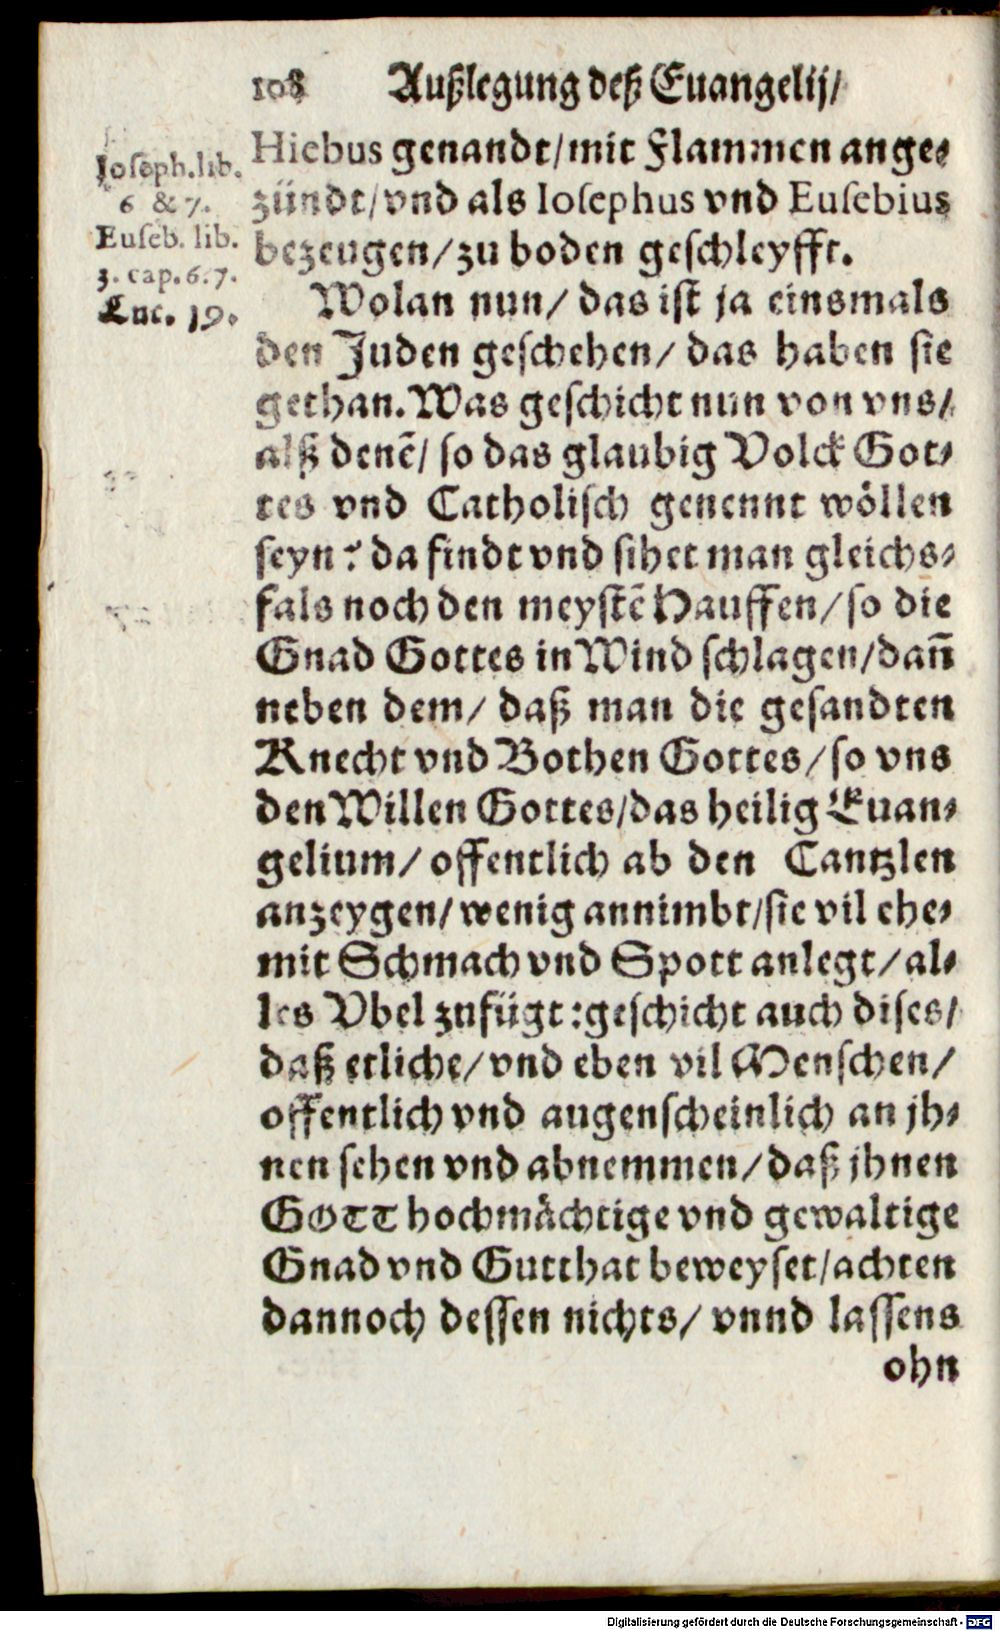 108 Außlegung deß Euangelij/
Hiebus genandt/mit Flammen ange⸗
zündt/vnd als Iosephus vnd Eusebius
bezeugen/zu boden geschleyfft.
Joseph.lib.
6 & 7.
Euseb. lib.
3. cap.6.7.
Luc. 19.
Wolan nun/ das ist ja einsmals
den Juden geschehen/ das haben sie
gethan. Was geschicht nun von vns/
alß denē/ so das glaubig Volck Got⸗
tes vnd Catholisch genennt wöllen
seyn? da findt vnd sihet man gleichs⸗
fals noch den meystē Hauffen/so die
Gnad Gottes in Wind schlagen/dañ
neben dem/ daß man die gesandten
Knecht vnd Bothen Gottes/so vns
den Willen Gottes/das heilig Euan⸗
gelium/ offentlich ab den Cantzlen
anzeygen/wenig annimbt/sie vil ehe⸗
mit Schmach vnd Spott anlegt/al⸗
les Vbel zufügt:geschicht auch dises/
daß etliche/vnd eben vil Menschen/
offentlich vnd augenscheinlich an jh⸗
nen sehen vnd abnemmen/daß jhnen
GOTT hochmächtige vnd gewaltige
Gnad vnd Gutthat beweyset/achten
dannoch dessen nichts/ vnnd lassens
ohn
Digitalisierung gefördert durch die Deutsche Forschungsgemeinschaft - DFG